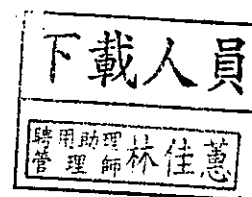 下載人員
聘用助理
管理師林佳蕙